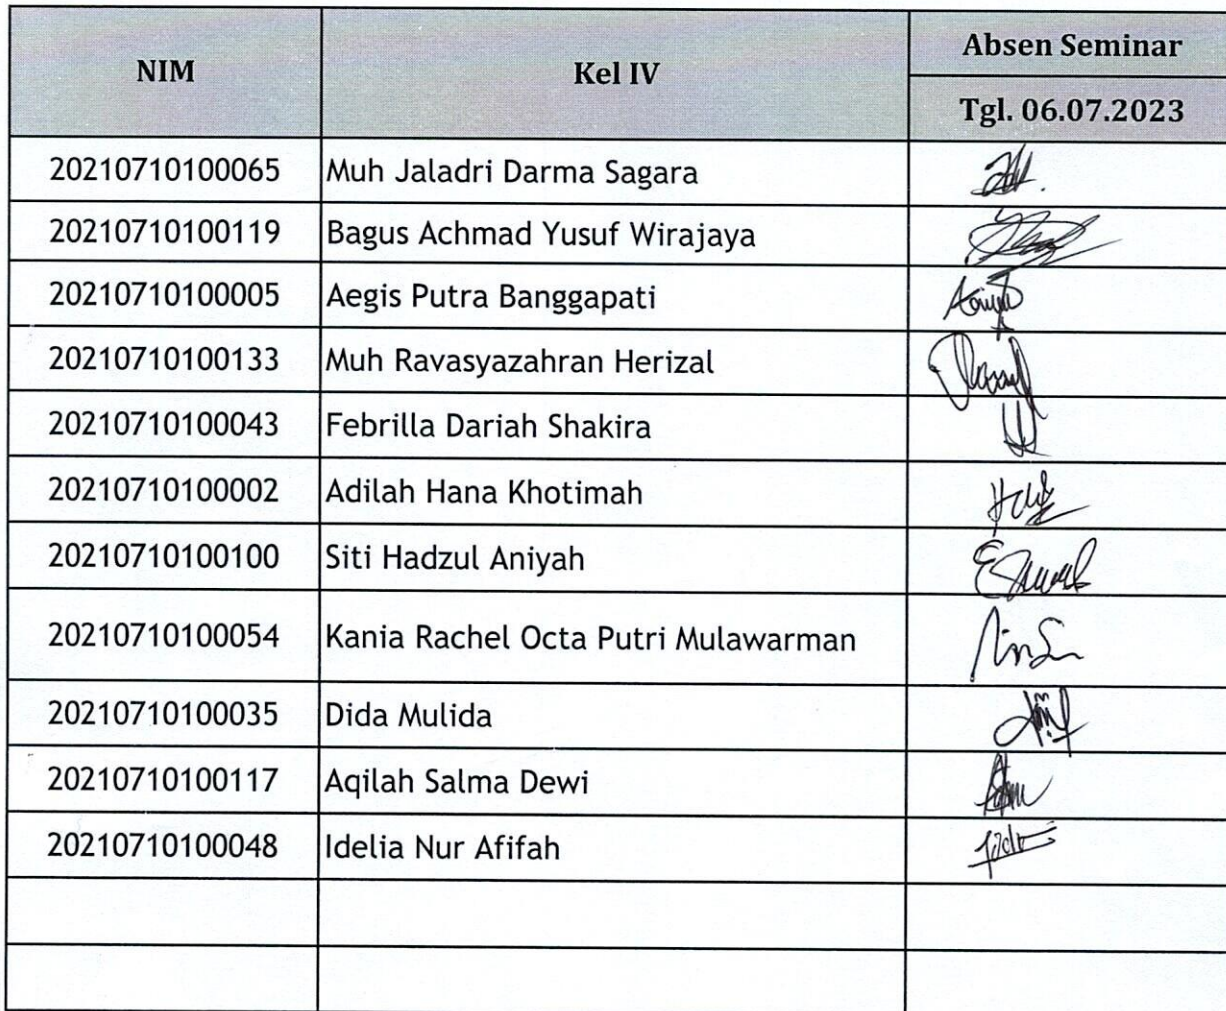 NIM Kel IV Absen Seminar
Tgl. 06.07.2023
20210710100065 Muh Jaladri Darma Sagara
20210710100119 Bagus Achmad Yusuf Wirajaya
20210710100005 Aegis Putra Banggapati
20210710100133 Muh Ravasyazahran Herizal
20210710100043 Febrilla Dariah Shakira
20210710100002 Adilah Hana Khotimah
20210710100100 Siti Hadzul Aniyah
20210710100054 Kania Rachel Octa Putri Mulawarman
20210710100035 Dida Mulida
20210710100117 Aqilah Salma Dewi
20210710100048 Idelia Nur Afifah